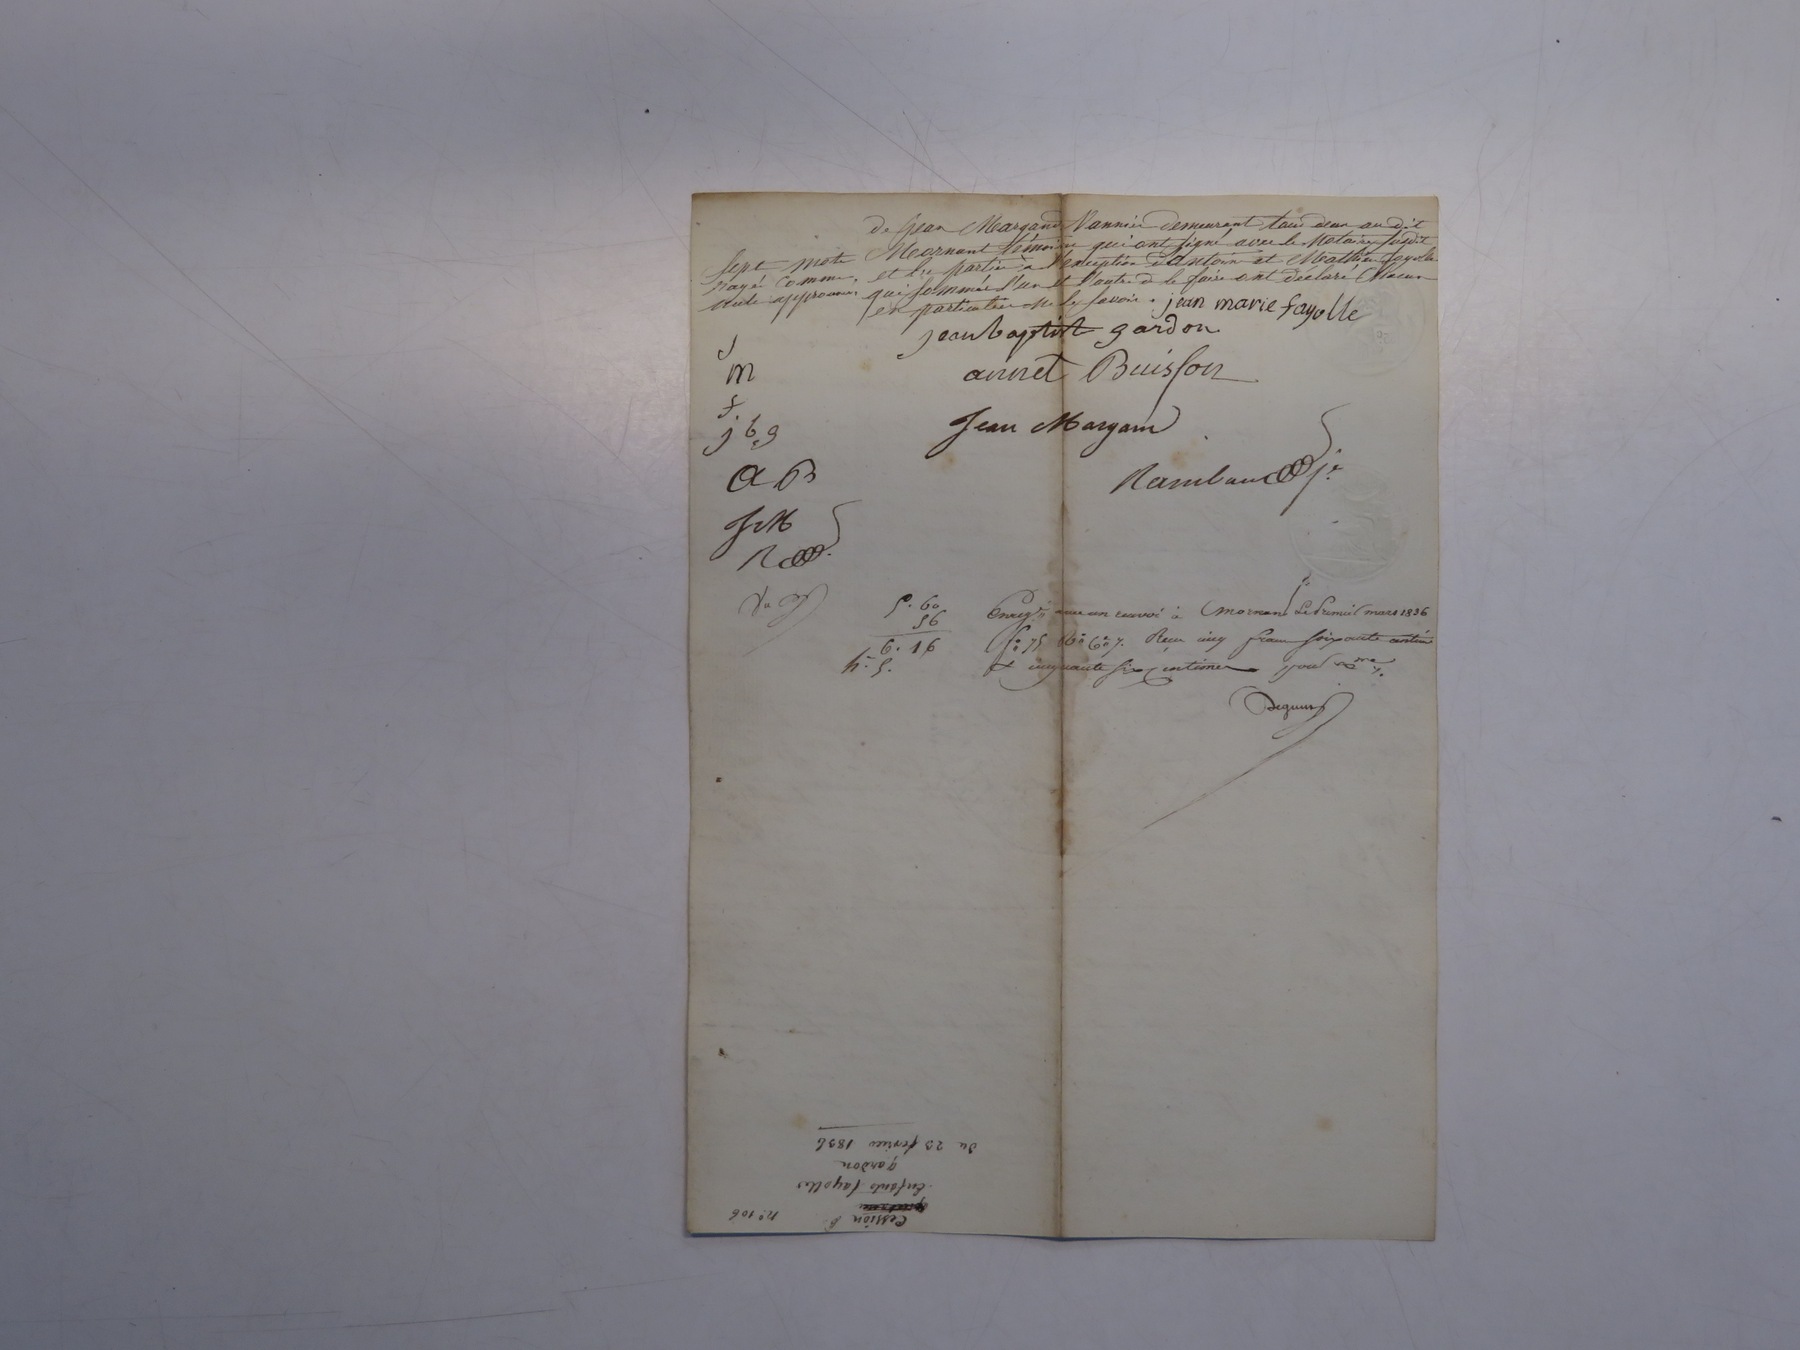 de Jean Margand Vannier demeurant tous deux au dit
Mornant témoins qui ont signé avec le Notaire susdit
et les parties à l'exception d'Antoine et Mathieu fayolle
qui sommés l'un et l'autre de le faire ont déclaré Chacun
en particulier ne le savoir. jean marie fayolle
Sept mots
rayés comme
nuls approuvés.
jean baptist gardon
annet Buisson
Jean Margam
Rambaud je
J
m
f.
j b g
a B
J M
R
5. 60
56
6. 16
h. 5.
Enreg. avec un renvoi à Mornant Le Premier mars 1836
fo 75 Ro Co 7. Reçu cinq francs soixante centimes
& cinquante six Centimes pour
Cession p.
enfants fayolles
gardon
du 23 fevrier 1836
no. 106